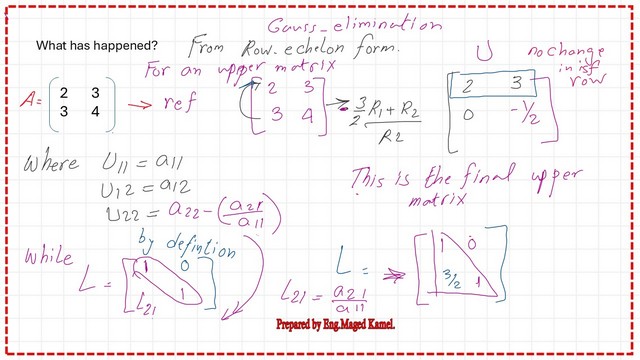 Gauss_elimination
What has happened?
From Row_echelon form.
For an upper matrix
U
no change
in 1st
row
A = [2 3
3 4]
→ ref
[2 3
3 4]
→ -3/2 R1 + R2
R2
[2 3
0 -1/2]
where U11 = a11
U12 = a12
U22 = a22 - (a21/a11)
This is the final upper
matrix
while
by defintion
L = [1 0
L21 1]
L =
L21 = a21/a11
⇒ [1 0
3/2 1]
Prepared by Eng.Maged Kamel.